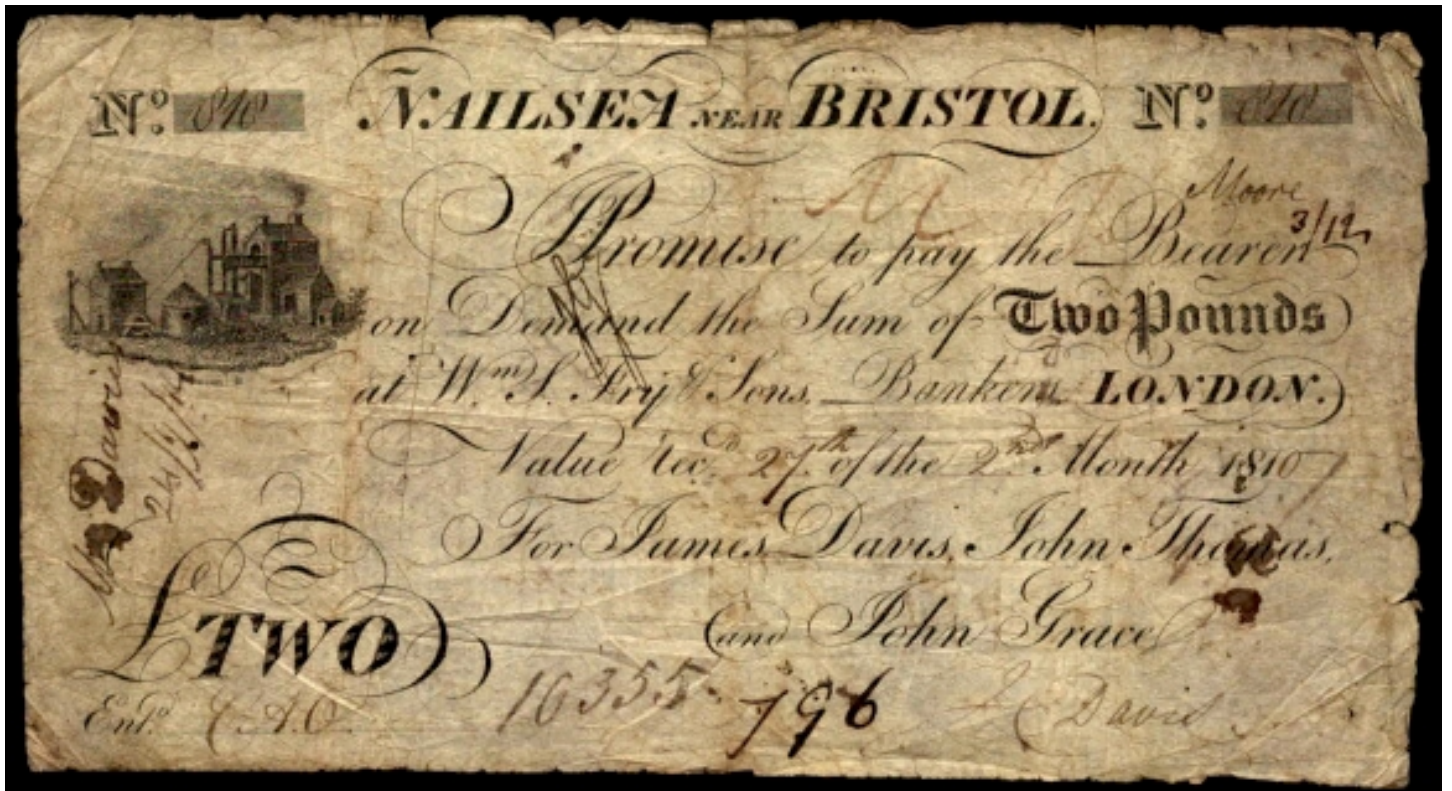 Nº 840 NAILSEA NEAR BRISTOL. Nº 840
Moore
3/12
I Promise to pay the Bearer
on Demand the Sum of Two Pounds
at Wm. S. Fry & Sons, Bankers, LONDON.
Value rec.d 27th of the 2nd Month 1810
For James Davis, John Thomas,
and John Grace
£ TWO
16355 796
Ent.d
Davis